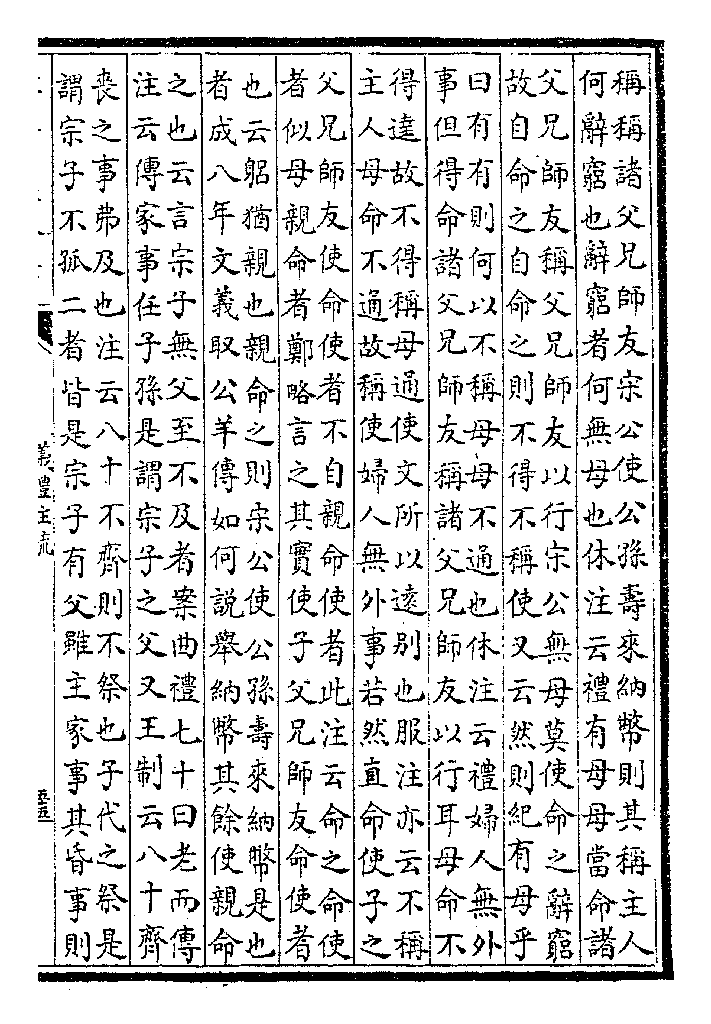 稱稱諸父兄師友宋公使公孫壽來納幣則其稱主人
何辭窮也辭窮者何無母也休注云禮有母母當命諸
父兄師友稱父兄師友以行宋公無母莫使命之辭窮
故自命之自命之則不得不稱使又云然則紀有母乎
曰有有則何以不稱母母不通也休注云禮婦人無外
事但得命諸父兄師友稱諸父兄師友以行耳母命不
得達故不得稱母通使文所以遠別也服注亦云不稱
主人母命不通故稱使婦人無外事若然直命使子之
父兄師友使命使者不自親命使者此注云命之命使
者似母親命者鄭略言之其實使子父兄師友命使者
也云躬猶親也親命之則宋公使公孫壽來納幣是也
者成八年文義取公羊傳如何說舉納幣其餘使親命
之也云言宗子無父至不及者案曲禮七十曰老而傳
注云傳家事任子孫是謂宗子之父又王制云八十齊
喪之事弗及也注云八十不齊則不祭也子代之祭是
謂宗子不孤二者皆是宗子有父雖主家事其昏事則
義禮主疏